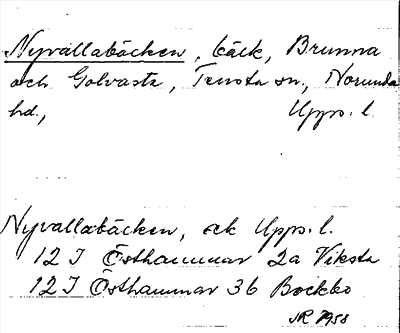 Nyvallabäcken, bäck, Brunna
och Golvasta, Tensta sn, Norunda
hd., Upps. l.
Nyvallabäcken, ek Upps. l.
12 I Östhammar 2a Viksta
12 I Östhammar 3b Bockbo
NR 1958